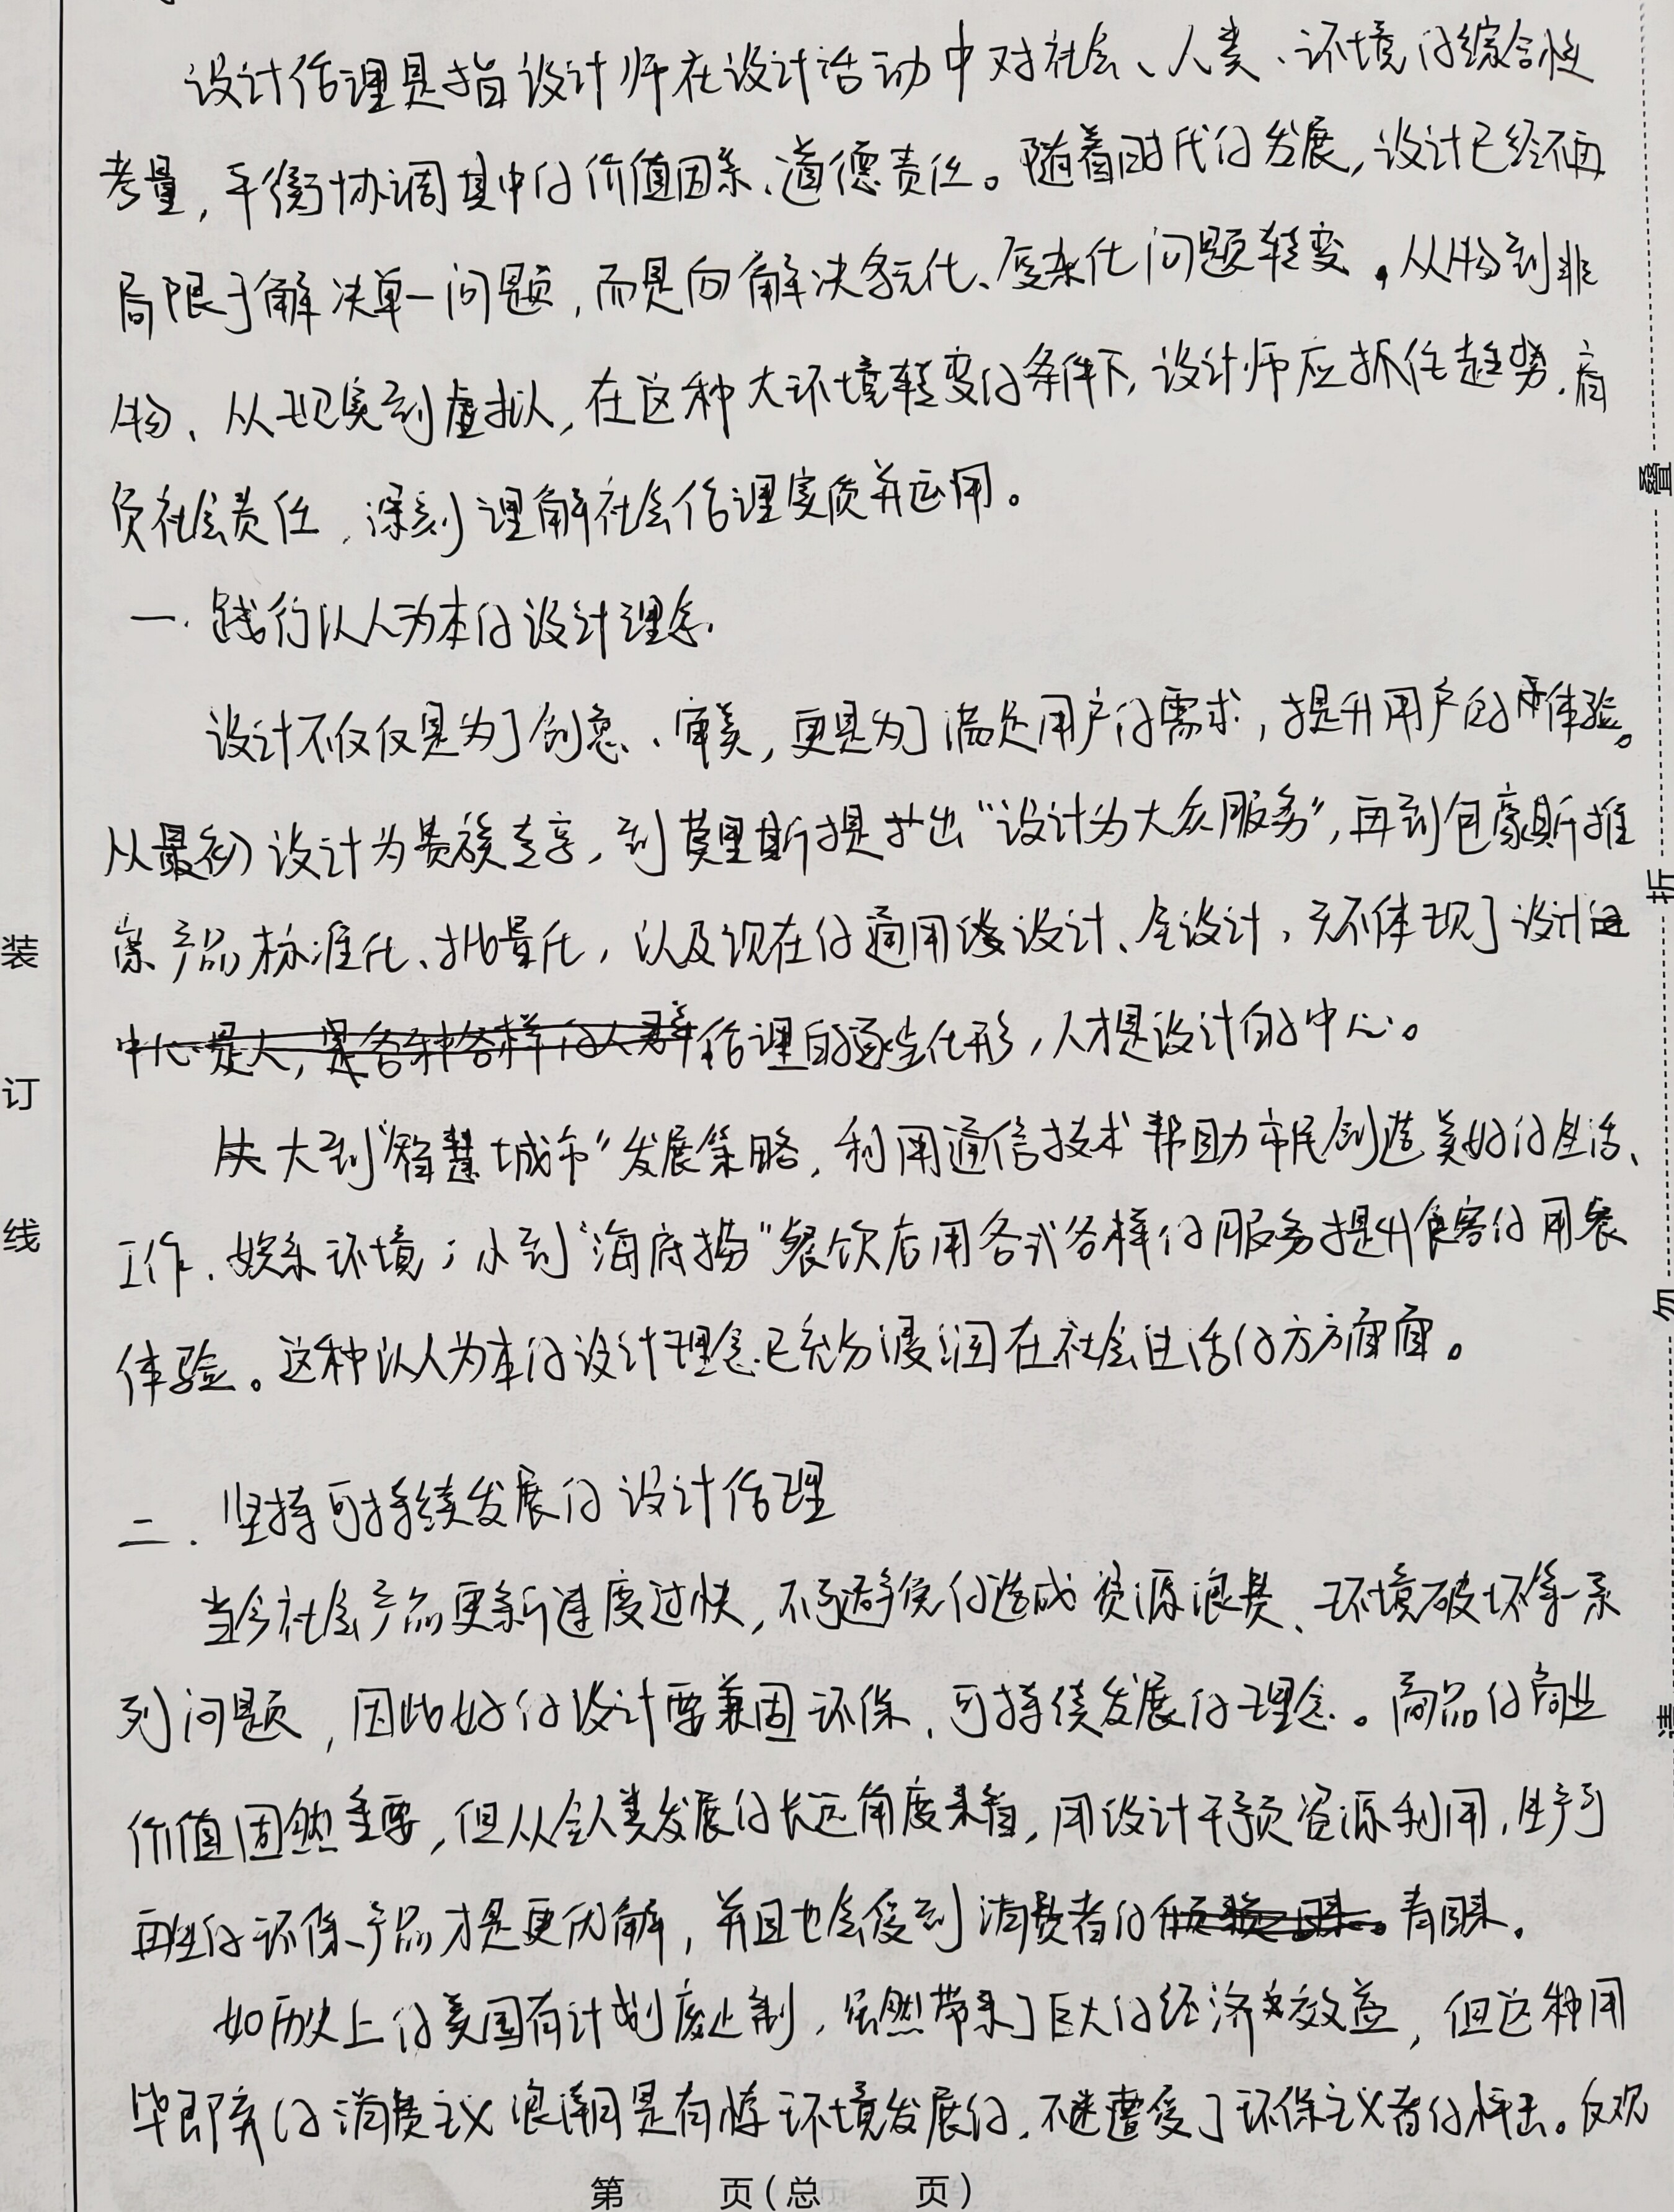 设计伦理是指设计师在设计活动中对社会、人类、环境的综合性
考量，平衡协调其中的价值因素、道德责任。随着时代的发展，设计已经不再
局限于解决单一问题，而是向解决多元化、复杂化问题转变，从物到非
物、从现实到虚拟，在这种大环境转变的条件下，设计师应抓住趋势，肩
负社会责任，深刻理解社会伦理实质并运用。
一．践行以人为本的设计理念．
设计不仅仅是为了创意、审美，更是为了满足用户的需求，提升用户的体验。
从最初设计为贵族专享，到莫里斯提出“设计为大众服务”，再到包豪斯推
崇产品标准化、批量化，以及现在的通用设计、全设计，无不体现了设计
中心是人，是各种各样的人群伦理的逐步化形，人才是设计的中心。
大到“智慧城市”发展策略，利用通信技术帮助市民创造美好的生活、
工作、娱乐环境；小到“海底捞”餐饮店用各式各样的服务提升食客的用餐
体验。这种以人为本的设计理念已充分浸润在社会生活的方方面面。
二．坚持可持续发展的设计伦理
当今社会产品更新速度过快，不可避免的造成资源浪费、环境破坏等一系
列问题，因此好的设计要兼固环保、可持续发展的理念。商品的商业
价值固然重要，但从全人类发展的长远角度来看，用设计干预资源利用，生产可
再生的环保产品才是更优解，并且也会受到消费者的青睐。
如历史上的美国有计划废止制，虽然带来了巨大的经济效益，但这种用
毕即弃的消费主义浪潮是有悖环境发展的，不遭受了环保主义者的抨击。反观
第 页（总 页）
装
订
线
叠
折
勿
请